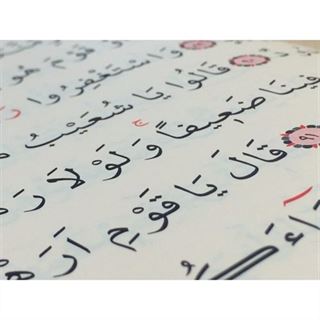 قَوْمَ هُو
وَاسْتَغْفِرُوا
قَالُوا يَا شُعَيْبُ
فِينَا ضَعِيفاً وَلَوْلَا رَ
٩١ قَالَ يَا قَوْمِ أَرَهْ